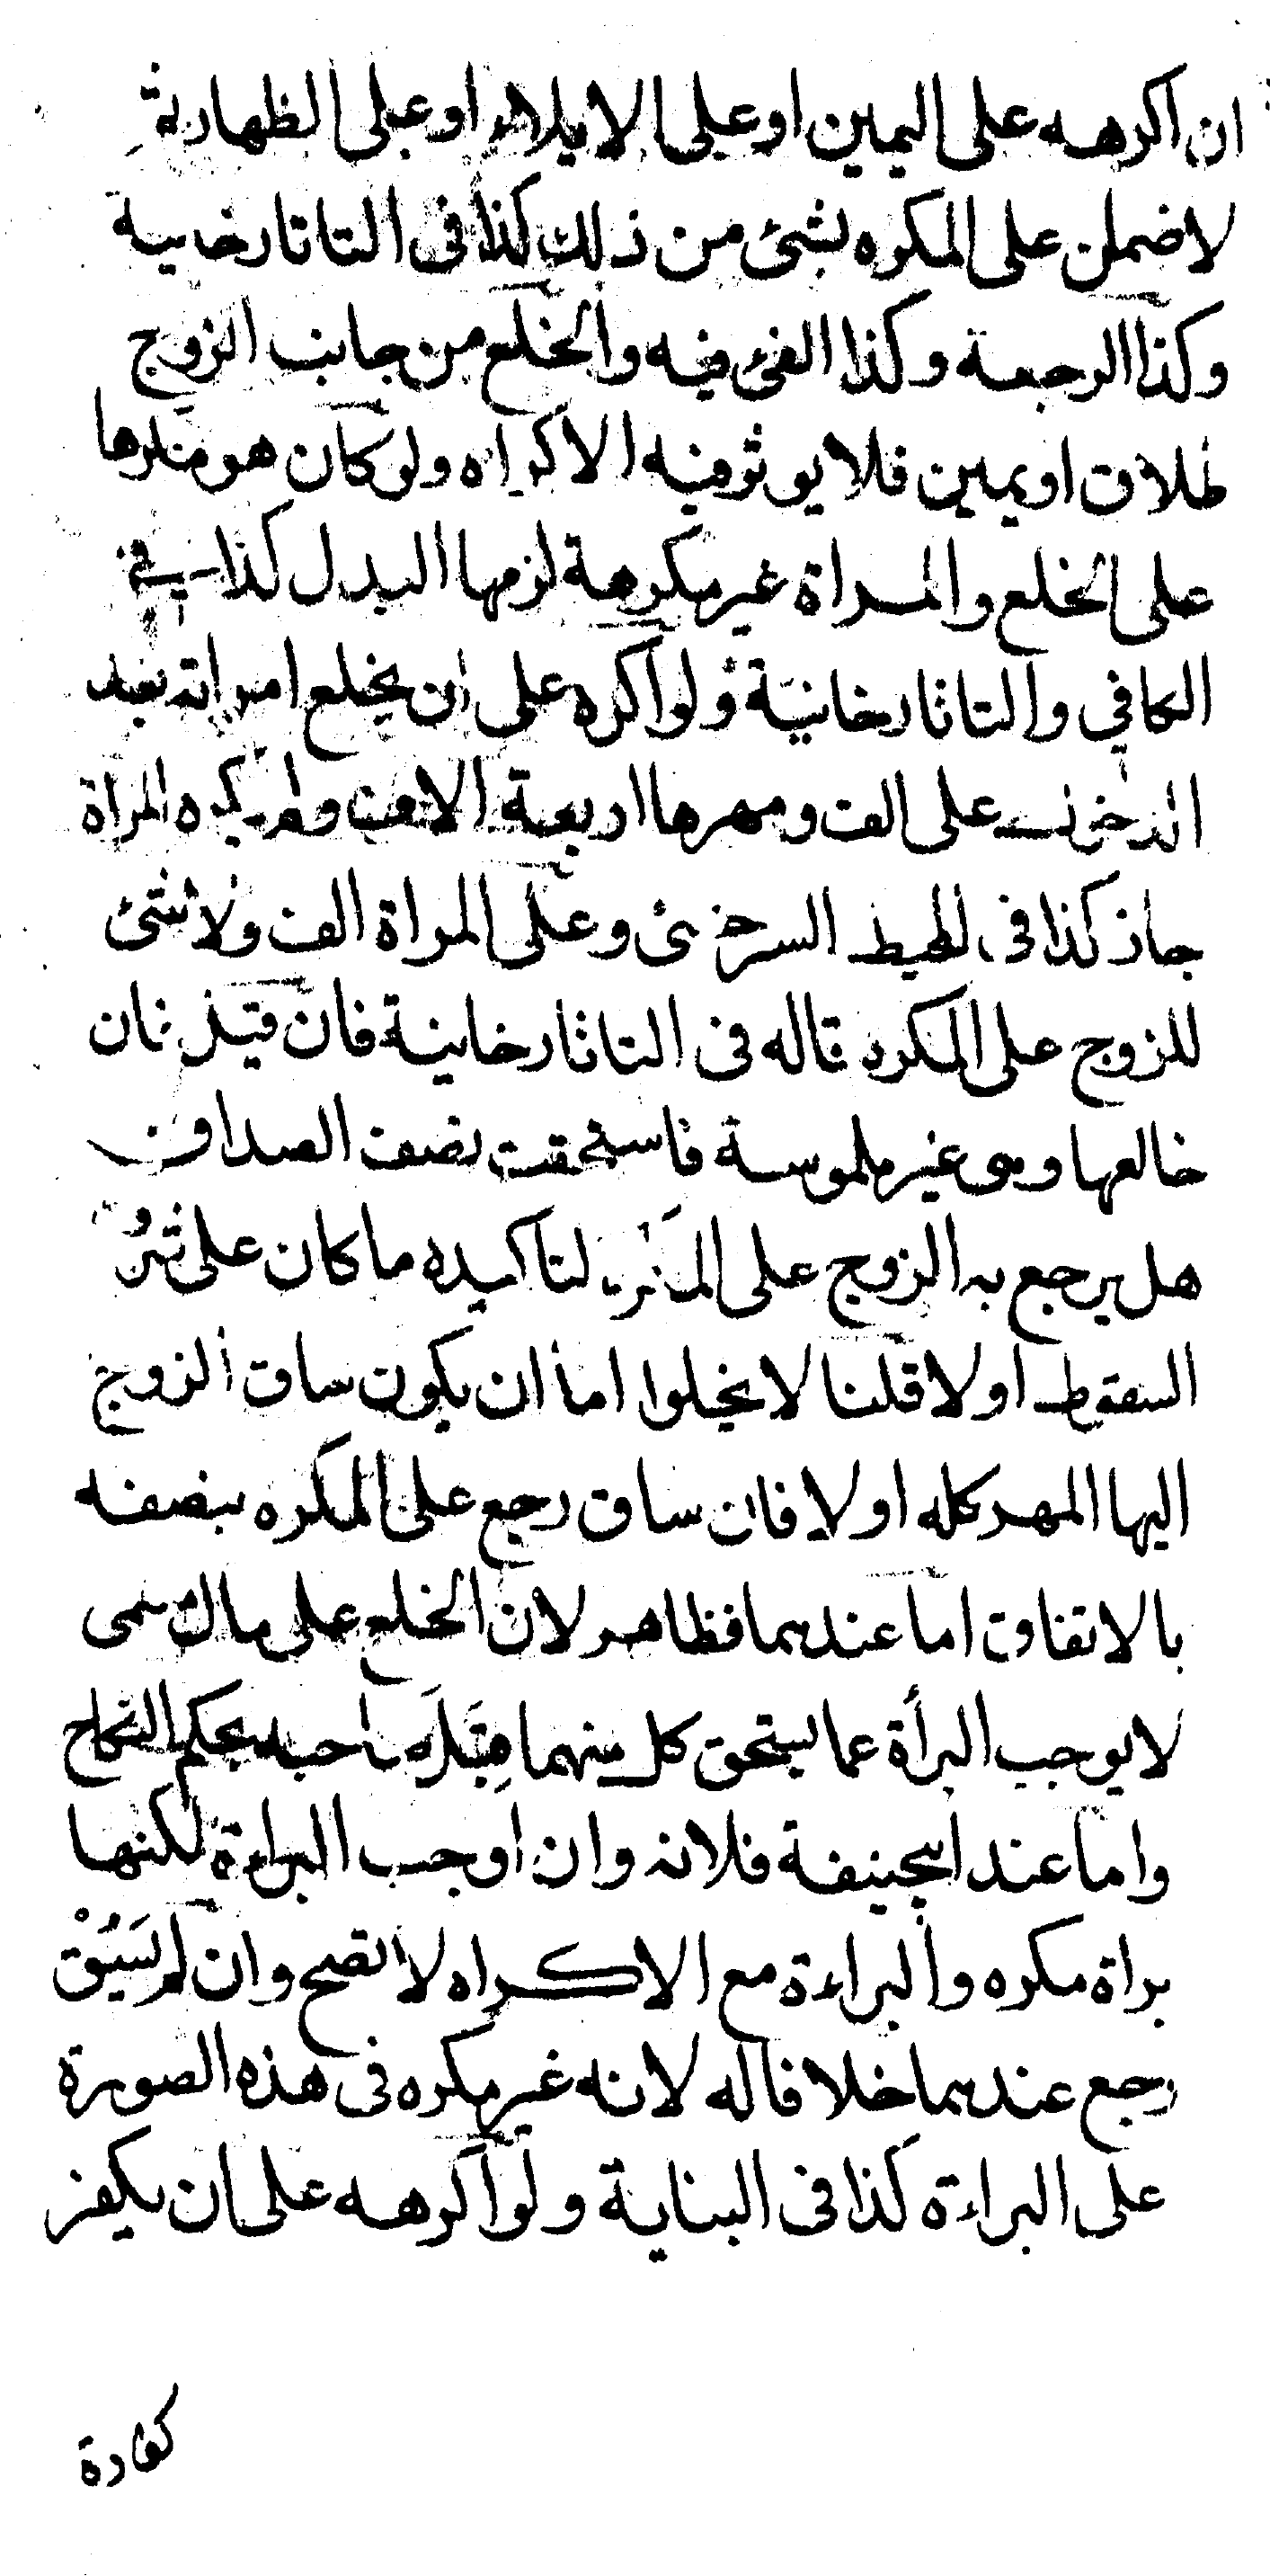 ان اكرهه على اليمين او على الايلاء او على الظهار ثم
لاضمان على المكره بشئ من ذلك كذا فى التاتارخانية
وكذا الرجعة وكذا الفئ فيه والخلع من جانب الزوج
طلاق او يمين فلا يوثر فيه الاكراه ولو كان هو مكرها
على الخلع والمراة غير مكرهة لزمها البدل كذا فى
الكافي والتاتارخانية ولو اكره على ان يخلع امراته بعد
الدخول على الف ومهرها اربعة الاف ولم يكره المراة
جاز كذا فى المحيط السرخسى وعلى المراة الف ولا شئ
للزوج على المكره قاله فى التاتارخانية فان قيل فان
خالعها وهى غير ملموسة فاستحقت نصف الصداق
هل يرجع به الزوج على المكره لتاكيده ما كان على شرف
السقوط او لا قلنا لا يخلوا اما ان يكون ساق الزوج
اليها المهر كله او لا فان ساق رجع على المكره بنصفه
بالاتفاق اما عندهما فظاهر لان الخلع على مال سمى
لا يوجب البرأة عما يستحق كل منهما قِبَلَ صاحبه بحكم النكاح
واما عند ابيحنيفة فلانه وان اوجب البراءة لكنها
براة مكره والبراءة مع الاكراه لا تصح وان لم يَسُقْ
رجع عندهما خلافا له لانه غير مكره فى هذه الصورة
على البراءة كذا فى البناية ولو اكرهه على ان يكفر
كفارة